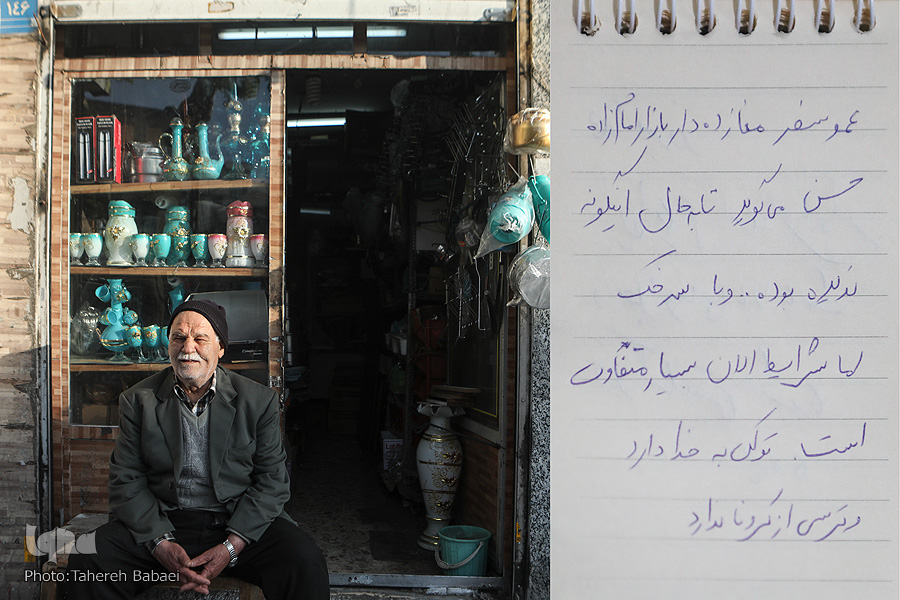 ۱۴۶
عمو صفر مغازه دار بازار امامزاده
حسن می‌گوید تا به حال اینگونه
ندیده بوده.. و با
اما شرایط الان بسیار متفاوت
است. توکل به خدا دارد
و ترسی از کرونا ندارد
iqna
Photo:Tahereh Babaei